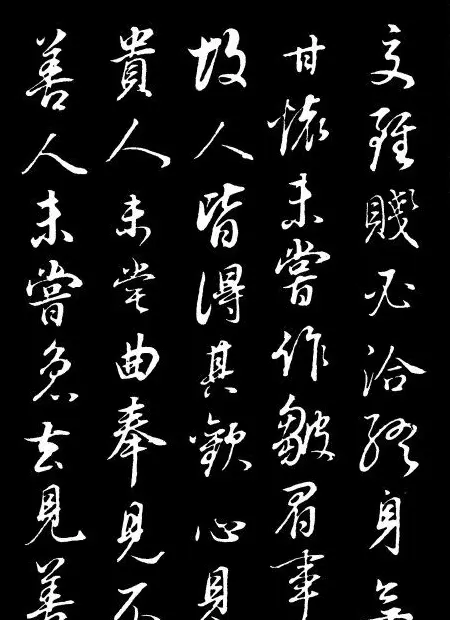 交雖賤必洽終身無
甘懷未嘗作皺眉事
故人皆得其歡心見
貴人未嘗曲奉見不
善人未嘗急去見善